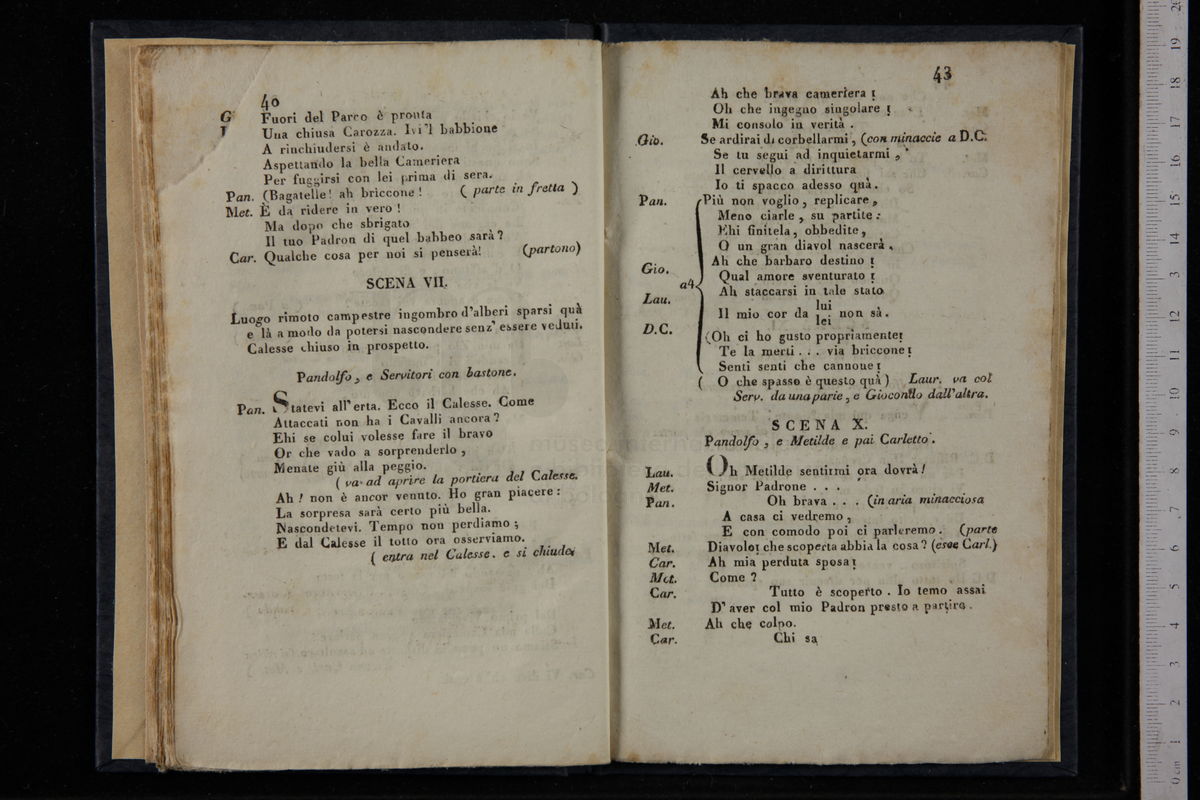 40
Fuori del Parco è pronta
Una chiusa Carozza. Ivi'l babbione
A rinchiudersi è andato.
Aspettando la bella Cameriera
Per fuggirsi con lei prima di sera.
Pan. (Bagatelle! ah briccone! ( parte in fretta )
Met. È da ridere in vero!
Ma dopo che sbrigato
Il tuo Padron di quel babbeo sarà?
Car. Qualche cosa per noi si penserà! (partono)
SCENA VII.
Luogo rimoto campestre ingombro d'alberi sparsi quà
e là a modo da potersi nascondere senz' essere veduti.
Calesse chiuso in prospetto.
Pandolfo, e Servitori con bastone.
Pan. Statevi all'erta. Ecco il Calesse. Come
Attaccati non ha i Cavalli ancora?
Ehi se colui volesse fare il bravo
Or che vado a sorprenderlo,
Menate giù alla peggio.
( va ad aprire la portiera del Calesse.
Ah! non è ancor venuto. Ho gran piacere:
La sorpresa sarà certo più bella.
Nascondetevi. Tempo non perdiamo;
E dal Calesse il totto ora osserviamo.
( entra nel Calesse. e si chiude)
43
Ah che brava cameriera!
Oh che ingegno singolare!
Mi consolo in verità.
Gio. Se ardirai di corbellarmi, (con minaccie a D.C.
Se tu segui ad inquietarmi,
Il cervello a dirittura
Io ti spacco adesso quà.
Pan. Più non voglio, replicare,
Meno ciarle, su partite:
Ehi finitela, obbedite,
O un gran diavol nascerà.
Gio. Ah che barbaro destino!
a4 Qual amore sventurato!
Lau. Ah staccarsi in tale stato
Il mio cor da lui lei non sà.
D.C. (Oh ci ho gusto propriamente!
Te la merti... via briccone!
Senti senti che cannone!
( O che spasso è questo quà) Laur. va col
Serv. da una parte, e Giocondo dall'altra.
SCENA X.
Pandolfo, e Metilde e poi Carletto.
Lau. Oh Metilde sentirmi ora dovrà!
Met. Signor Padrone...
Pan. Oh brava... (in aria minacciosa
A casa ci vedremo,
E con comodo poi ci parleremo. (parte
Met. Diavolo! che scoperta abbia la cosa? (esce Carl.)
Car. Ah mia perduta sposa!
Met. Come?
Car. Tutto è scoperto. Io temo assai
D' aver col mio Padron presto a partire.
Met. Ah che colpo.
Car. Chi sa